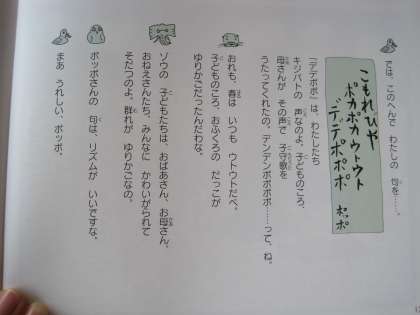 では、このへんで わたしの 句を……。
こもれびや
ポカポカ ウトウト
デンデンポポポポ
ポッポ
「デデポポ」は、わたしたち
キジバトの 声なのよ。子どものころ、
母さんが その声で 子守歌を
うたってくれたの。デンデンポポポポ……って、ね。
おれも、春は いつも ウトウトだべ。
子どものころ、おふくろの だっこが
ゆりかごだったんだわな。
ゾウの 子どもたちは、おばあさん、お母さん、
おねえさんたち、みんなに かわいがられて
そだつのよ。群れが ゆりかごなの。
ポッポさんの 句は、リズムが いいですな。
まあ うれしい、ポッポ。